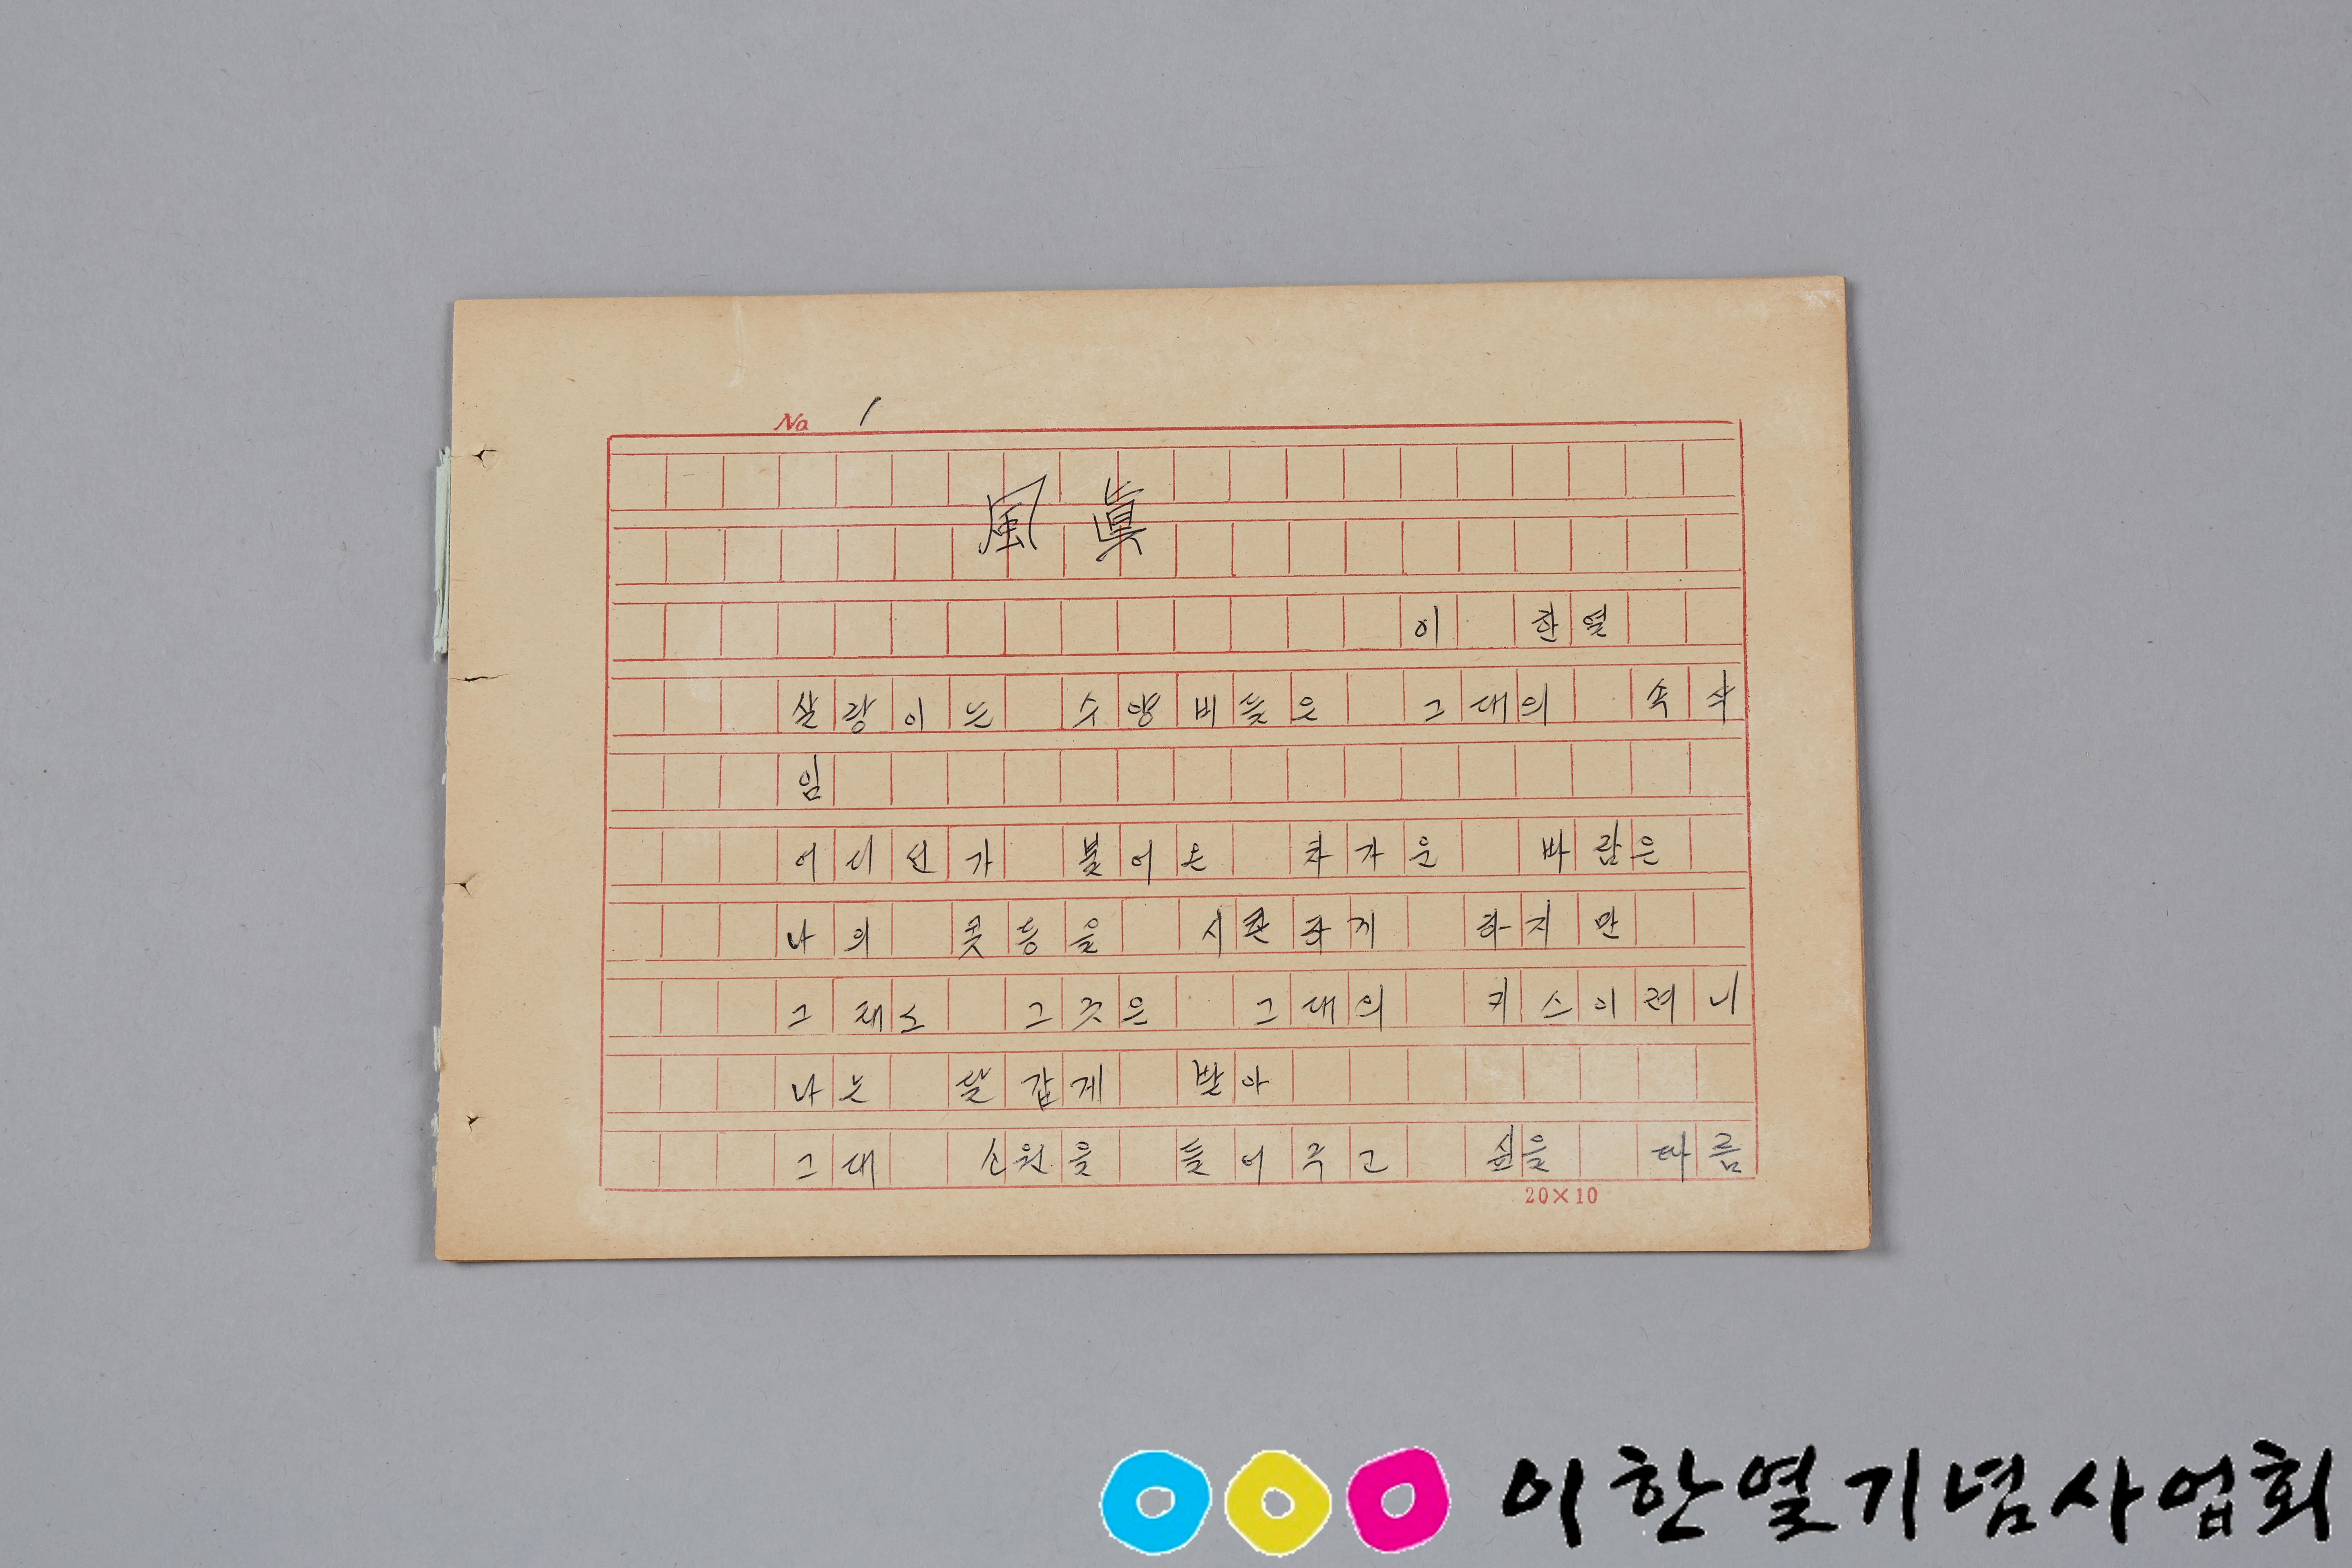 No 1
風 眞
이 한열
살랑이는 수양버들은 그대의 속삭
임
어디선가 불어온 차가운 바람은
나의 콧등을 시큰하게 하지만
그래도 그것은 그대의 키스이려니
나는 달갑게 받아
그대 소원을 들어주고 싶을 따름
20×10
이한열기념사업회